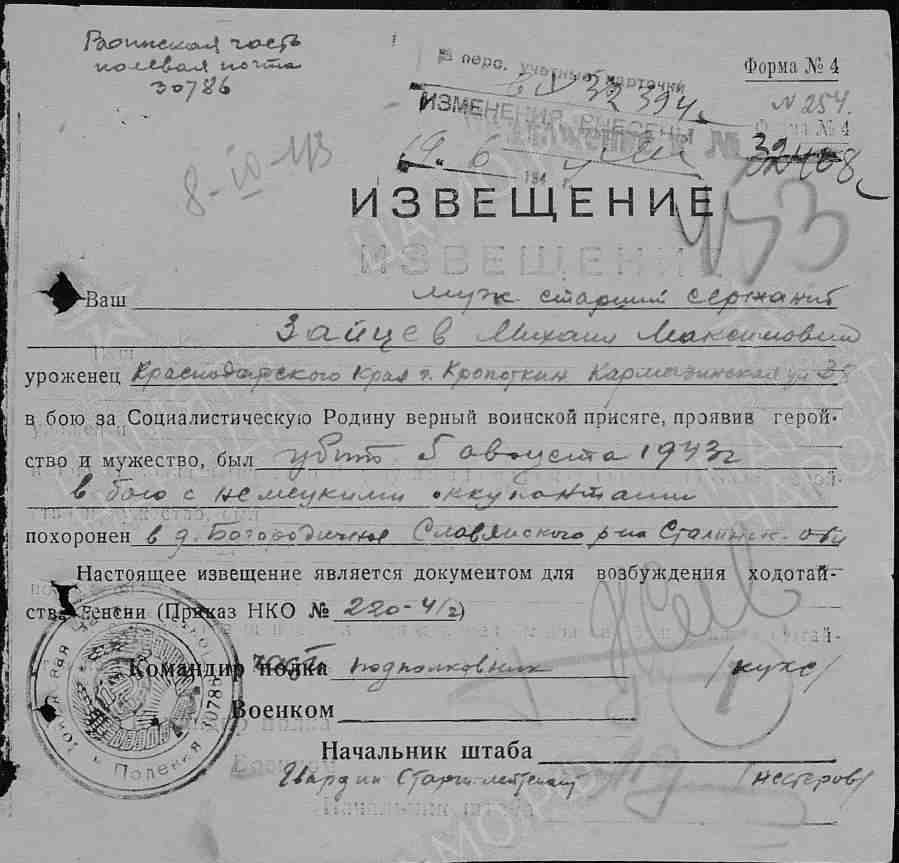 Воинская часть
полевая почта
30786
В перс. учетные карточки
ИЗМЕНЕНИЯ ВНЕСЕНЫ
32394
19. 6 194 г.
Форма № 4
N 254.
Форма № 4
32408
8-IX-43
ИЗВЕЩЕНИЕ
Ваш муж старший сержант
Зайцев Михаил Максимович
уроженец Краснодарского Края г. Кропоткин Кармазинская ул
в бою за Социалистическую Родину верный воинской присяге, проявив герой-
ство и мужество, был убит 5 августа 1943 г
в бою с немецкими оккупантами
похоронен в д. Богородичное Славянского р-на Сталинск. обл
Настоящее извещение является документом для возбуждения ходотай-
ства пенсии (Приказ НКО № 220-41г)
Командир полка части подполковник /Кукс/
Военком
Начальник штаба
Гвардии Старш. лейтенант /Нестеров/
Полевая 30786